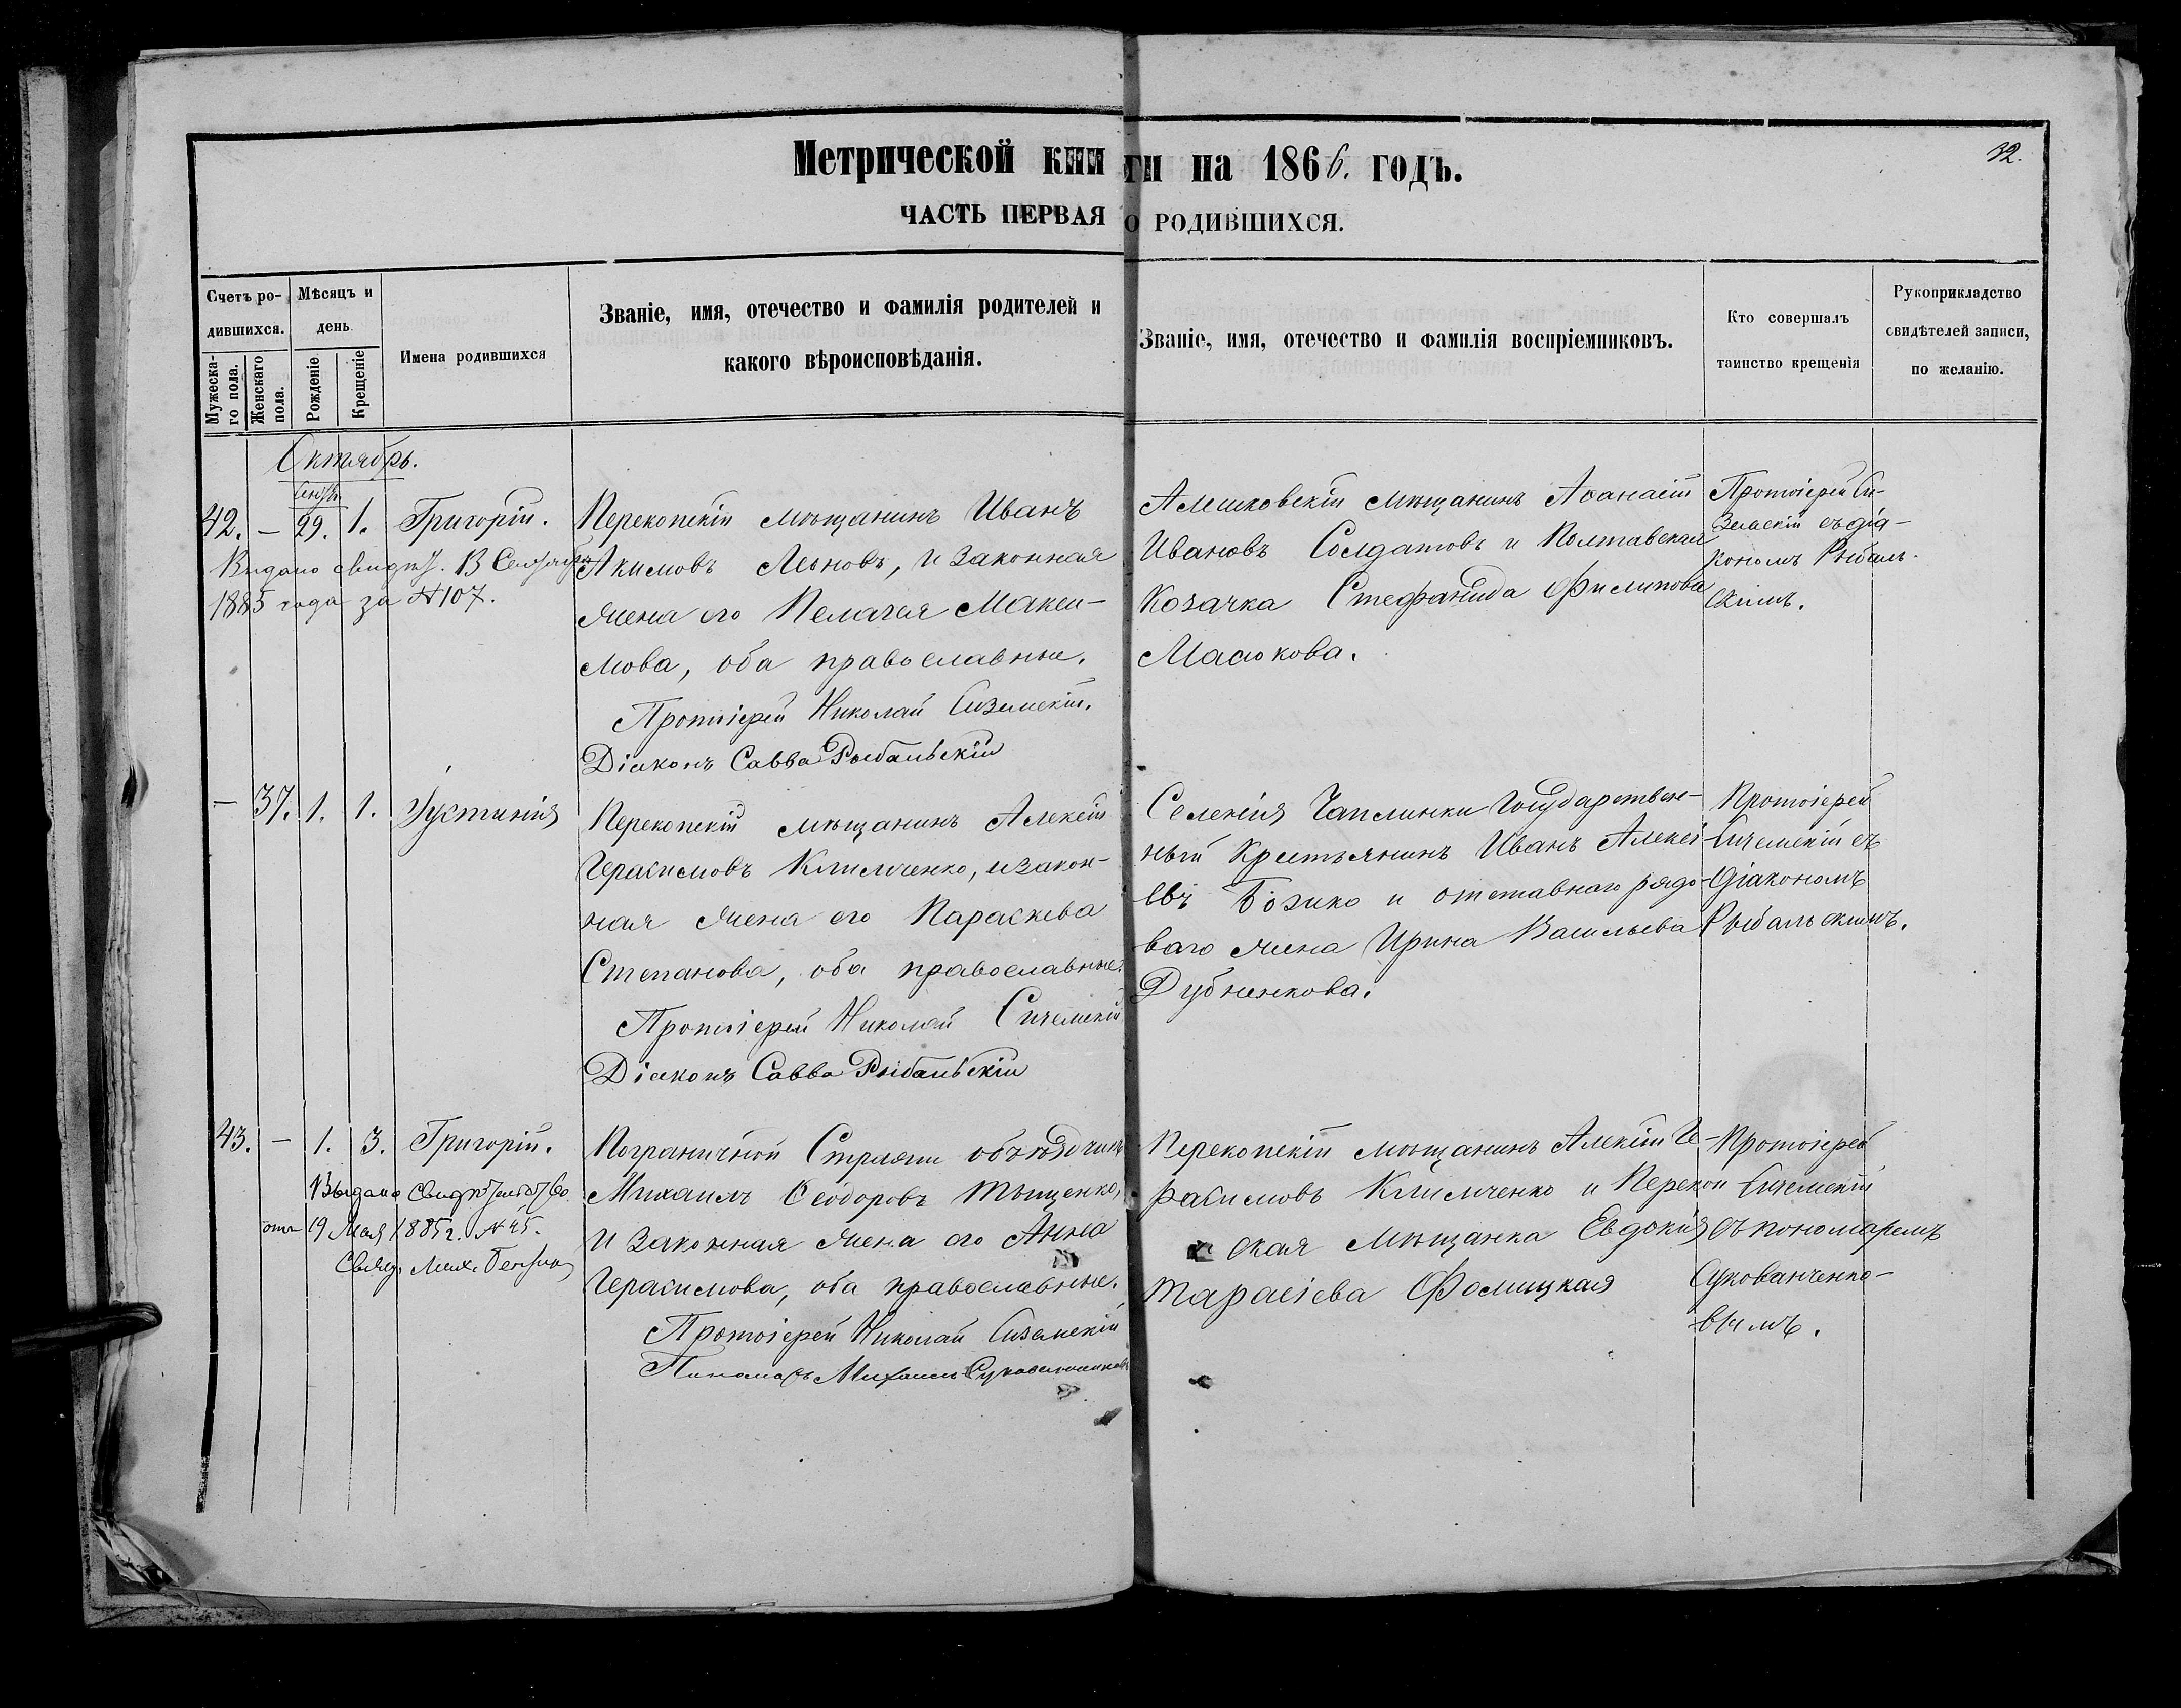 Метрической книги на 1866. годъ.
32.
ЧАСТЬ ПЕРВАЯ О РОДИВШИХСЯ.
Счетъ ро-
дившихся.
Мужеска-
го пола.
Женскаго
пола.
Мѣсяцъ и
день
Рожденіе
Крещеніе
Имена родившихся
Званіе, имя, отечество и фамилія родителей и
какого вѣроисповѣданія.
Званіе, имя, отечество и фамилія воспріемниковъ.
Кто совершалъ
таинство крещенія
Рукоприкладство
свидѣтелей записи,
по желанію.
Октябрь.
42. — 29. 1. Григорій.
Выдано свидѣт.
1885 года за №107.
Перекопскій мѣщанинъ Иванъ
Акимовъ Леоновъ, и законная
жена его Пелагея Макси-
мова, оба православные.
Протоіерей Николай Сиземскій.
Діаконъ Савва Рыбальскій
Алешковскій мѣщанинъ Аѳанасій
Ивановъ Солдатовъ и Полтавская
Козачка Стефанида Филипова
Масюкова.
Протоіерей Си-
земскій съ діа-
кономъ Рыбаль-
скимъ.
— 37. 1. 1. Іустинія
Перекопскій мѣщанинъ Алексій
Герасимовъ Климченко, и закон-
ная жена его Параскева
Степанова, оба православные.
Протоіерей Николай Сиземскій
Діаконъ Савва Рыбальскій
Селенія Чаплинки Государствен-
ный Крестьянинъ Иванъ Алексі-
евъ Бозико и отставнаго рядо-
ваго жена Ирина Васильева
Дубненкова.
Протоіерей
Сиземскій съ
діакономъ
Рыбальскимъ.
43. — 1. 3. Григорій.
Выдано свидѣтельство
отъ 19 Мая 1885 г. №45.
Свящ. Мих.
Пограничной Стражи объѣздчикъ
Михаилъ Ѳеодоровъ Тыщенко,
и законная жена его Анна
Герасимова, оба православные.
Протоіерей Николай Сиземскій
Пономарь Михаилъ
Перекопскій мѣщанинъ Алексій Ге-
расимовъ Климченко и Перекоп
ская мѣщанка Евдокія
Тарасіева Фомицкая
Протоіерей
Сиземскій
съ пономаремъ
Сукованченко-
вымъ.